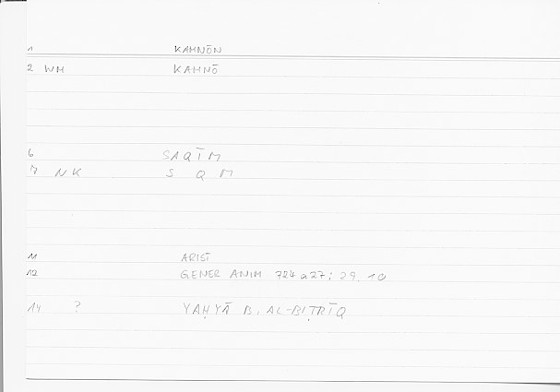 1 KAMNŌN
2 WM KAMNŌ
6 SAQĪM
7 NK S Q M
11 ARIST
12 GENER ANIM 724 a27; 29. 10
14 ? YAḤYĀ B. AL-BIṬRĪQ